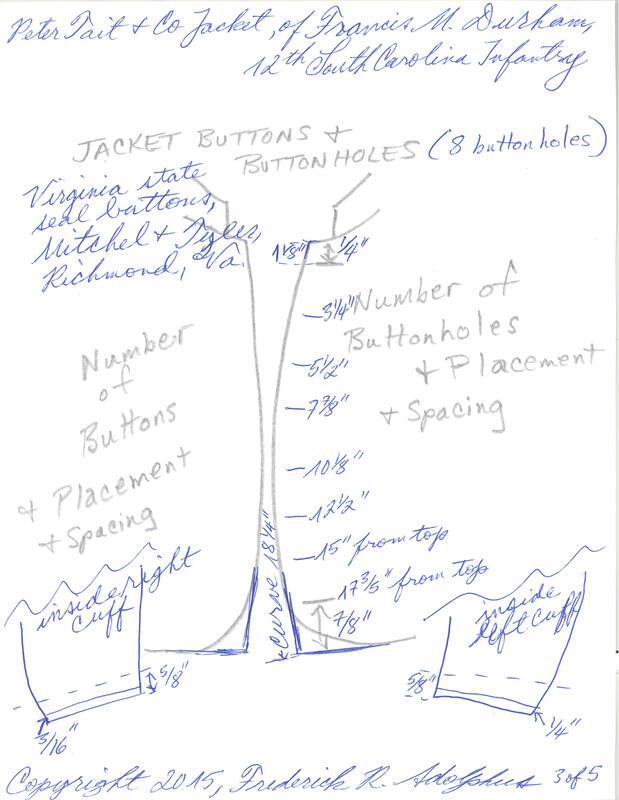 Peter Tait & Co Jacket, of Francis M. Durham,
12th South Carolina Infantry
JACKET BUTTONS &
BUTTONHOLES (8 buttonholes)
Virginia state
seal buttons,
Mitchel & Tyler,
Richmond, Va.
1 1/8"
1/4"
3 1/4"
Number of
Buttonholes
& Placement
& Spacing
5 1/2"
7 7/8"
10 1/8"
12 1/2"
15" from top
17 3/5" from top
7/8"
curve 18 1/4"
Number
of
Buttons
& Placement
& Spacing
inside right
cuff
5/8"
3/16"
inside
left cuff
5/8"
1/4"
Copyright 2015, Frederick R. Adolphus 3 of 5